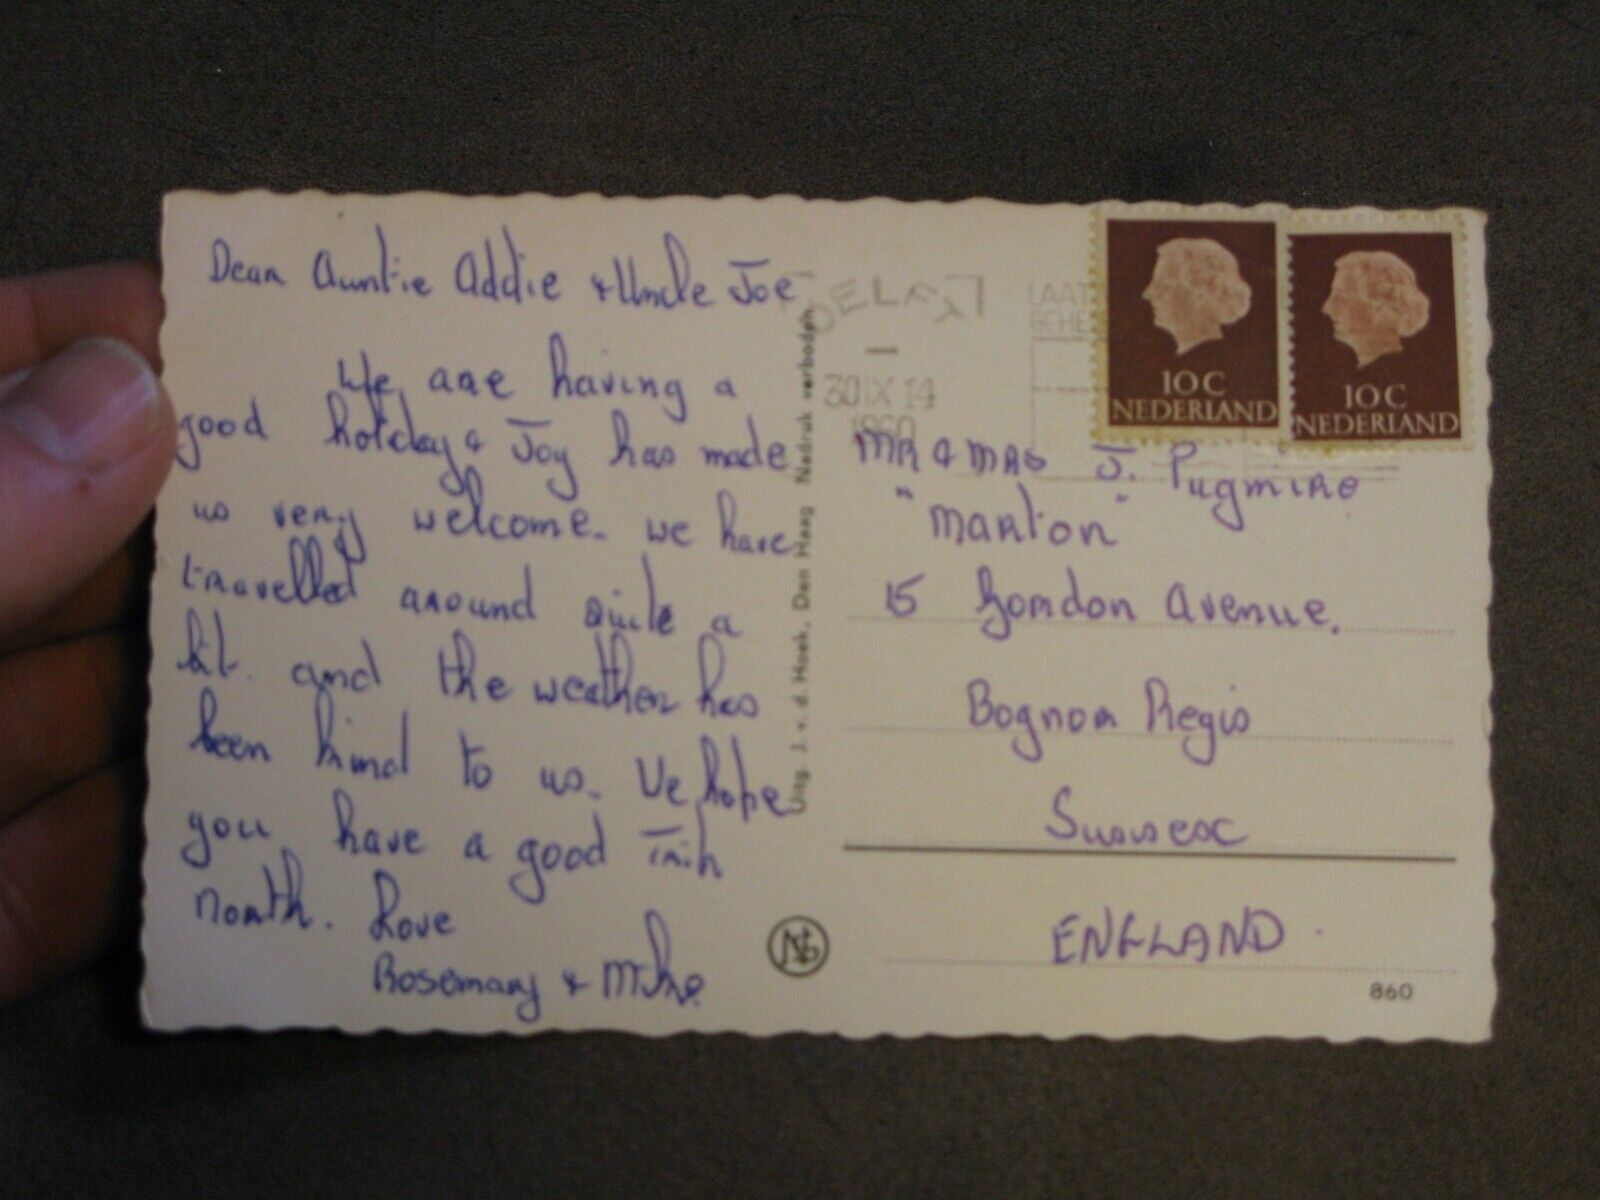 Dear Auntie Addie & Uncle Joe
We are having a
good holiday & Joy has made
us very welcome. We have
travelled around quite a
bit and the weather has
been kind to us. We hope
you have a good trip
north. Love
Rosemary & Mike.
Uitg. J. v. d. Hoek, Den Haag Nadruk verboden
DELFT
30 IX 14
1960
LAAT
GEHE
10C
NEDERLAND
10C
NEDERLAND
Mr & Mrs J. Pugmire
"Marton"
15 London Avenue,
Bognor Regis
Sussex
ENGLAND.
860